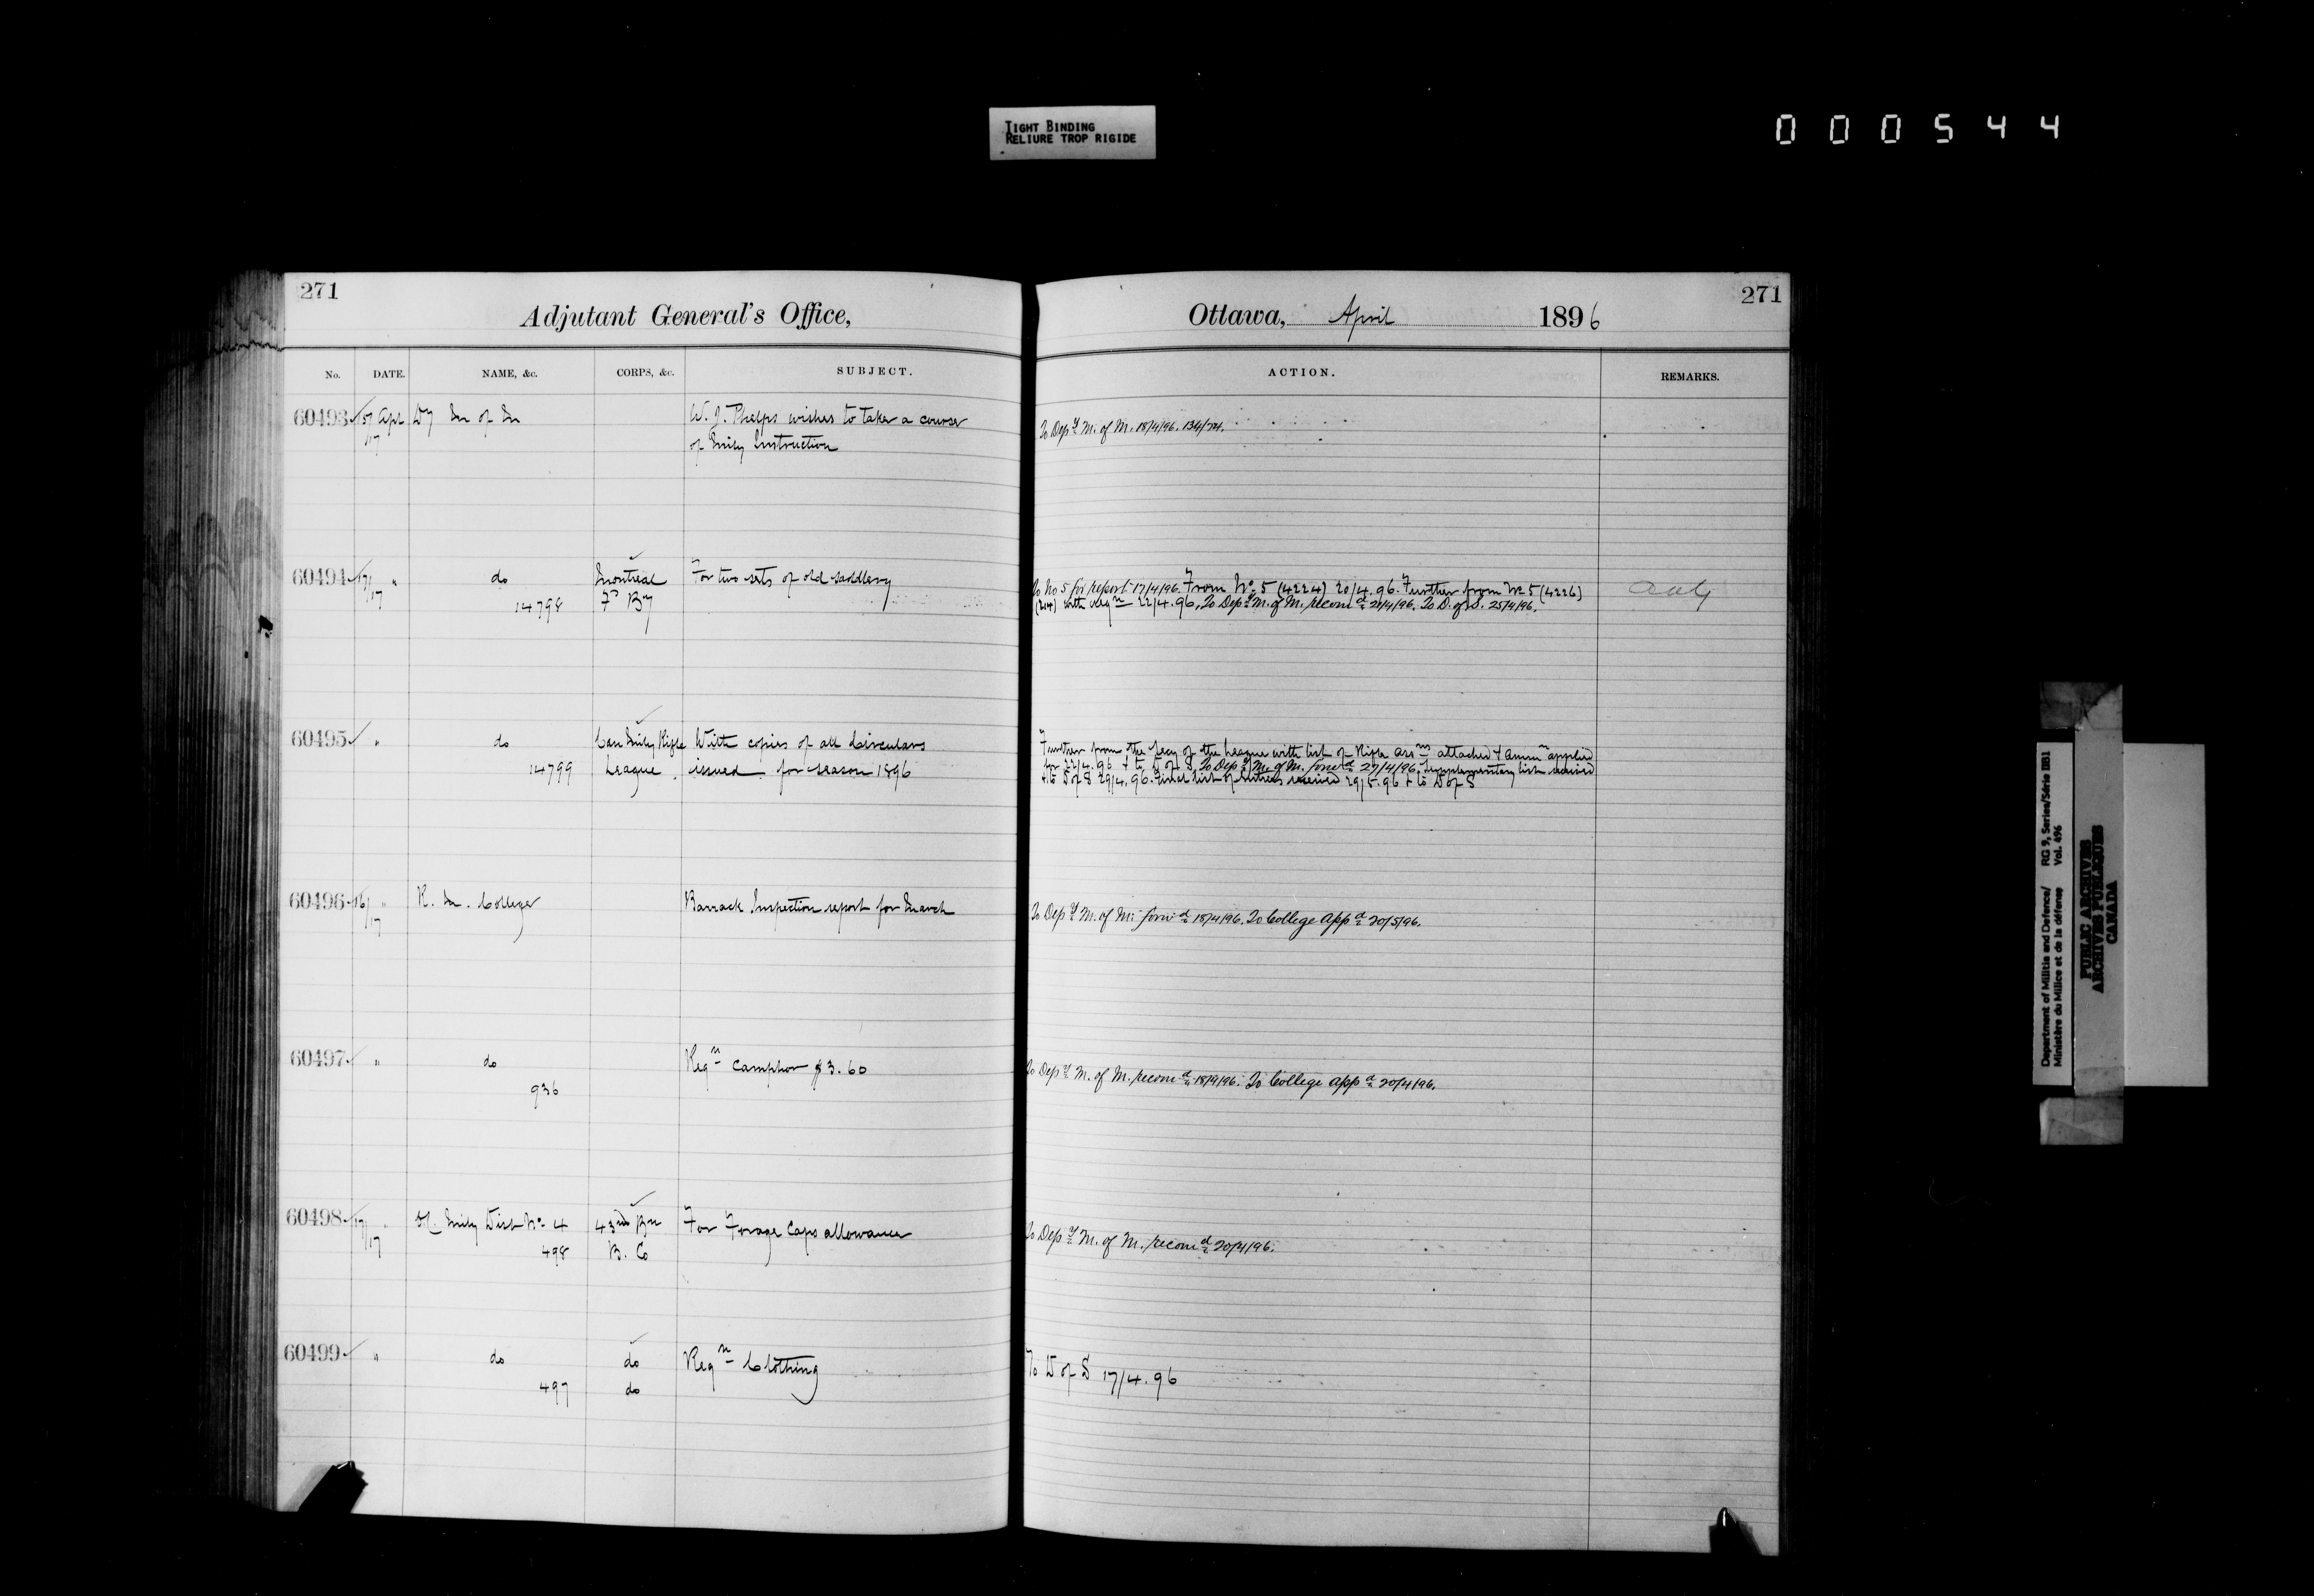 TIGHT BINDING
RELIURE TROP RIGIDE
000544
271
Adjutant General's Office,
Ottawa, April 1896
271
No. DATE. NAME, &c. CORPS, &c. SUBJECT. ACTION. REMARKS.
60493 Apl Dy M of M W. J. Phelps wishes to take a course
17 of Mily Instruction
To Depy M. of M. 18/4/96.
60494 17/17 " do Montreal For two sets of old saddlery
14798 Fd By
To No 5 for report 17/4/96. From No. 5 (4224) 20/4.96. Further from No 5 (4226)
with reqn 22/4.96. To Depy M. of M. recomd 21/4/96. To D. of S. 25/4/96.
60495 " do Can Mily Rifle With copies of all Circulars
14799 League. issued for season 1896
Further from the Secy of the League with list of Rifle Assns attached & Ammn applied
for 22/4.96 & to D of S. To Depy M. of M. forwd 27/4/96. Supplementary list received
& to D of S 29/4.96. Final list of entries received 29/5.96 & to D of S
60496 16/17 " R. M. College Barrack Inspection report for March
To Depy M. of M. forwd 18/4/96. To College appd 20/5/96.
60497 " do Reqn Camphor $3.60
936
To Depy M. of M. recomd 18/9/96. To College appd 20/4/96.
60498 17/17 " Of. Mily Dist No. 4 43rd Bn For Forage Caps allowance
498 B. Co
To Depy M. of M. recomd 20/4/96.
60499 " do do Reqn Clothing
497 do
To D of S 17/4.96
Department of Militia and Defence/ RG 9, Series/Série IIB1
Ministère du Milice et de la défense Vol. 496
PUBLIC ARCHIVES
ARCHIVES PUBLIQUES
CANADA